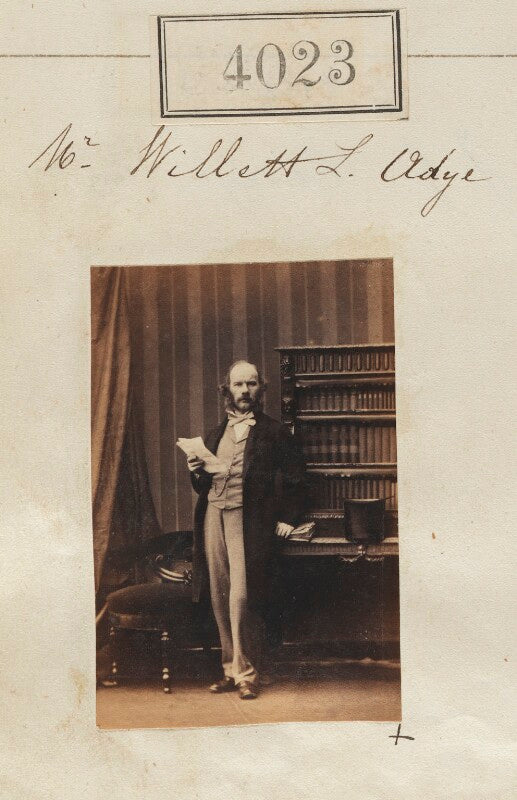 4023
Mr. Willett L. Adye
+